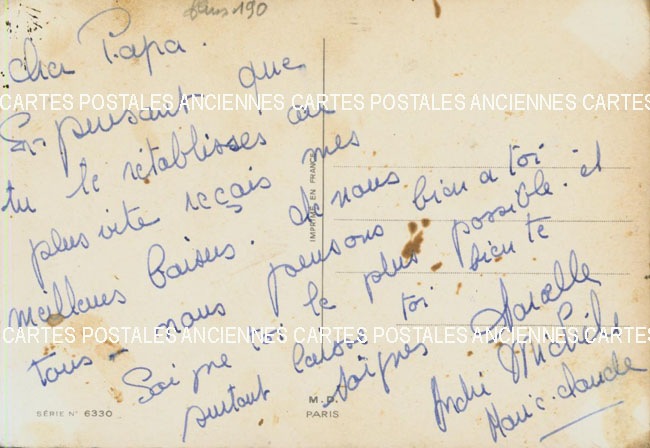 cher Papa.
En pensant que
tu te rétablisses au
plus vite reçois mes
meilleurs baisers. de nous
tous nous pensons bien a toi
Soigne toi le plus possible. et
surtout laisse toi bien te
soigner
Marcelle
André Michèle
Marie. claude
CARTES POSTALES ANCIENNES CARTES POSTALES ANCIENNES CARTES
CARTES POSTALES ANCIENNES CARTES POSTALES ANCIENNES CARTES
IMPRIMÉ EN FRANCE
SÉRIE N° 6330
M.D.
PARIS
190